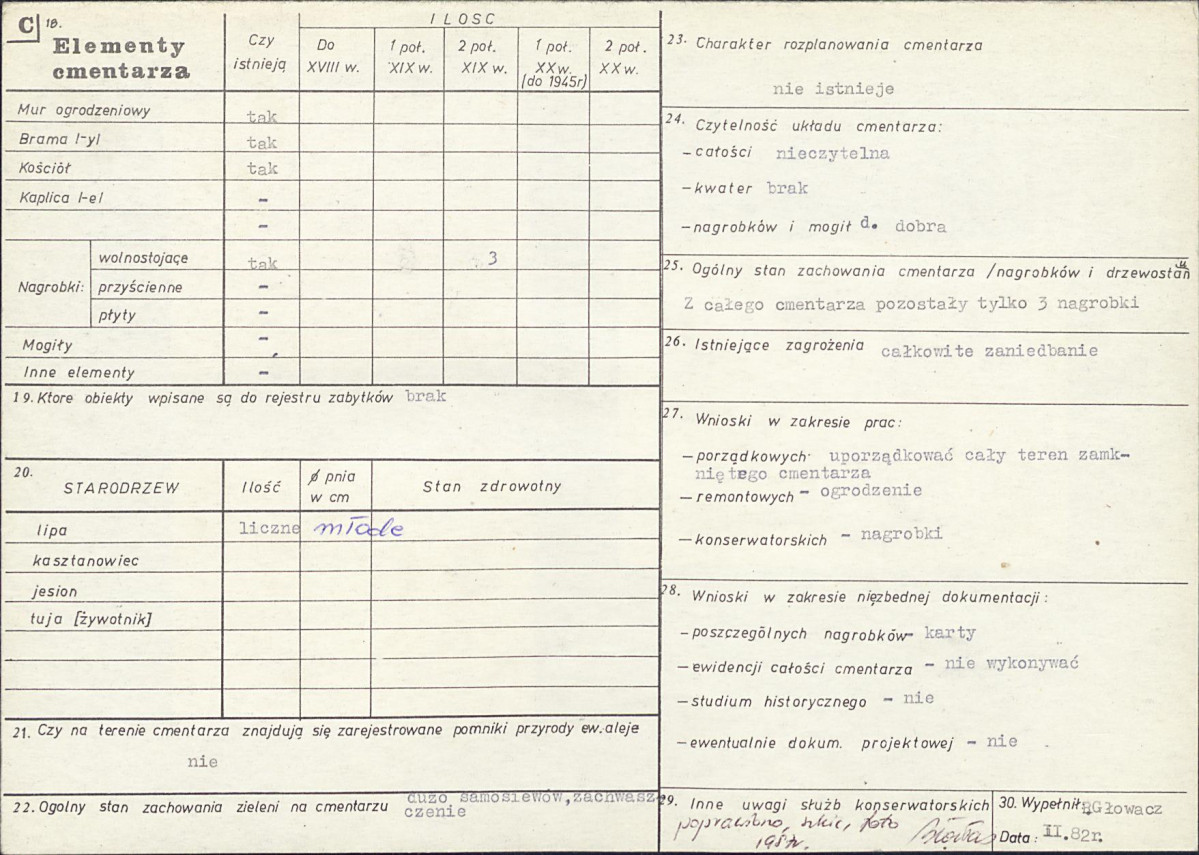 C 18.
Elementy cmentarza
Czy istnieją
ILOSC
Do XVIII w.
1 poł. XIX w.
2 poł. XIX w.
1 poł. XX w. (do 1945r)
2 poł. XX w.
Mur ogrodzeniowy tak
Brama /-y/ tak
Kościół tak
Kaplica /-e/ -
-
Nagrobki: wolnostojące tak 3
przyścienne -
płyty -
Mogiły -
Inne elementy -
19. Ktore obiekty wpisane są do rejestru zabytków brak
20.
STARODRZEW Ilość ø pnia w cm Stan zdrowotny
lipa liczne młode
kasztanowiec
jesion
tuja [żywotnik]
21. Czy na terenie cmentarza znajdują się zarejestrowane pomniki przyrody ew. aleje
nie
22. Ogolny stan zachowania zieleni na cmentarzu dużo samosiewów, zachwasz-
czenie
23. Charakter rozplanowania cmentarza
nie istnieje
24. Czytelność układu cmentarza:
- całości nieczytelna
- kwater brak
- nagrobków i mogił d. dobra
25. Ogólny stan zachowania cmentarza /nagrobków i drzewostan
Z całego cmentarza pozostały tylko 3 nagrobki
26. Istniejące zagrożenia całkowite zaniedbanie
27. Wnioski w zakresie prac:
- porządkowych - uporządkować cały teren zamk-
niętego cmentarza
- remontowych - ogrodzenie
- konserwatorskich - nagrobki
28. Wnioski w zakresie nięzbednej dokumentacji:
- poszczególnych nagrobków - karty
- ewidencji całości cmentarza - nie wykonywać
- studium historycznego - nie
- ewentualnie dokum. projektowej - nie
29. Inne uwagi służb konserwatorskich
poprawiono, szkic, foto
30. Wypełnił BGłowacz
Data: II.82r.